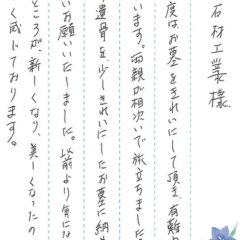 石材工業様
度はお墓をきれいにして頂き、有難
います。両親が相次いで旅立ちました
遺骨を、少しきれいにしたお墓に納め
いお願いいたしました。以前より気にな
ところが、新しくなり、美しくなったの
く感じております。